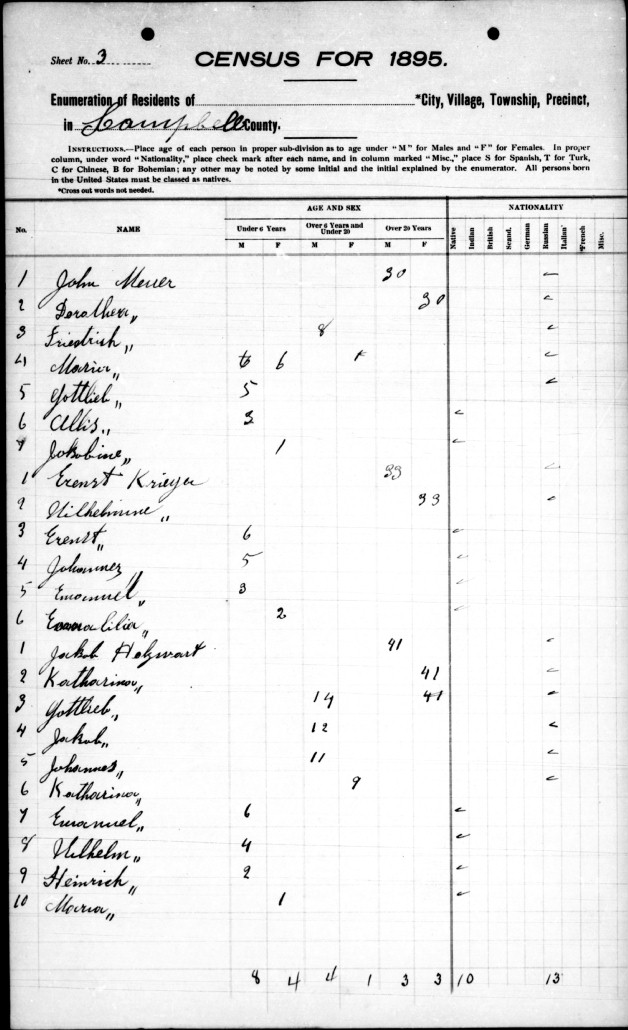 Sheet No. 3
CENSUS FOR 1895.
Enumeration of Residents of *City, Village, Township, Precinct,
in Campbell County.
INSTRUCTIONS.—Place age of each person in proper sub-division as to age under "M" for Males and "F" for Females. In proper
column, under word "Nationality," place check mark after each name, and in column marked "Misc.," place S for Spanish, T for Turk,
C for Chinese, B for Bohemian; any other may be noted by some initial and the initial explained by the enumerator. All persons born
in the United States must be classed as natives.
*Cross out words not needed.
AGE AND SEX NATIONALITY
No. NAME Under 6 Years Over 6 Years and Under 20 Over 20 Years Native Indian British Scand. German Russian Italian French Misc.
M F M F M F
1 John 30 ✓
2 Dorathea " 30 ✓
3 Friedrich " 8 ✓
4 Maria " 6 ✓
5 Gottlieb " 5 ✓
6 Allis " 3 ✓
7 Jakobine " 1 ✓
1 Erenst Krieger 33 ✓
2 Wilhelmine " 33 ✓
3 Erenst " 6 ✓
4 Johannes " 5 ✓
5 Emanuel " 3 ✓
6 " 2 ✓
1 Jakob Holzwart 41 ✓
2 Katharina " 41 ✓
3 Gottlieb " 14 41 ✓
4 Jakob " 12 ✓
5 Johannes " 11 ✓
6 Katharina " 9 ✓
7 Emanuel " 6 ✓
8 Wilhelm " 4 ✓
9 Heinrich " 2 ✓
10 Maria " 1 ✓
8 4 4 1 3 3 10 13